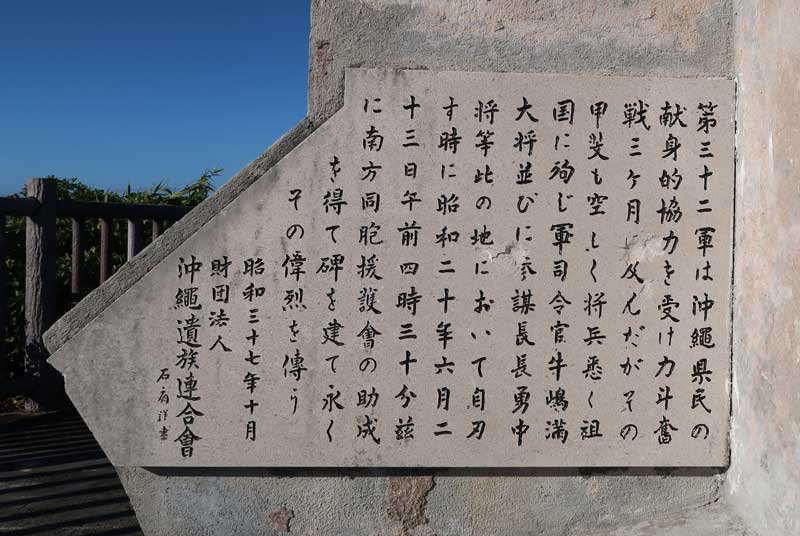 第三十二軍は沖縄県民の
献身的協力を受け力斗奮
戦三ヶ月に及んだがその
甲斐も空しく将兵悉く祖
国に殉じ軍司令官牛嶋満
大将並びに参謀長長勇中
将等此の地において自刃
す時に昭和二十年六月二
十三日午前四時三十分茲
に南方同胞援護會の助成
を得て碑を建て永く
その偉烈を傳う
昭和三十七年十月
財団法人
沖繩遺族連合會